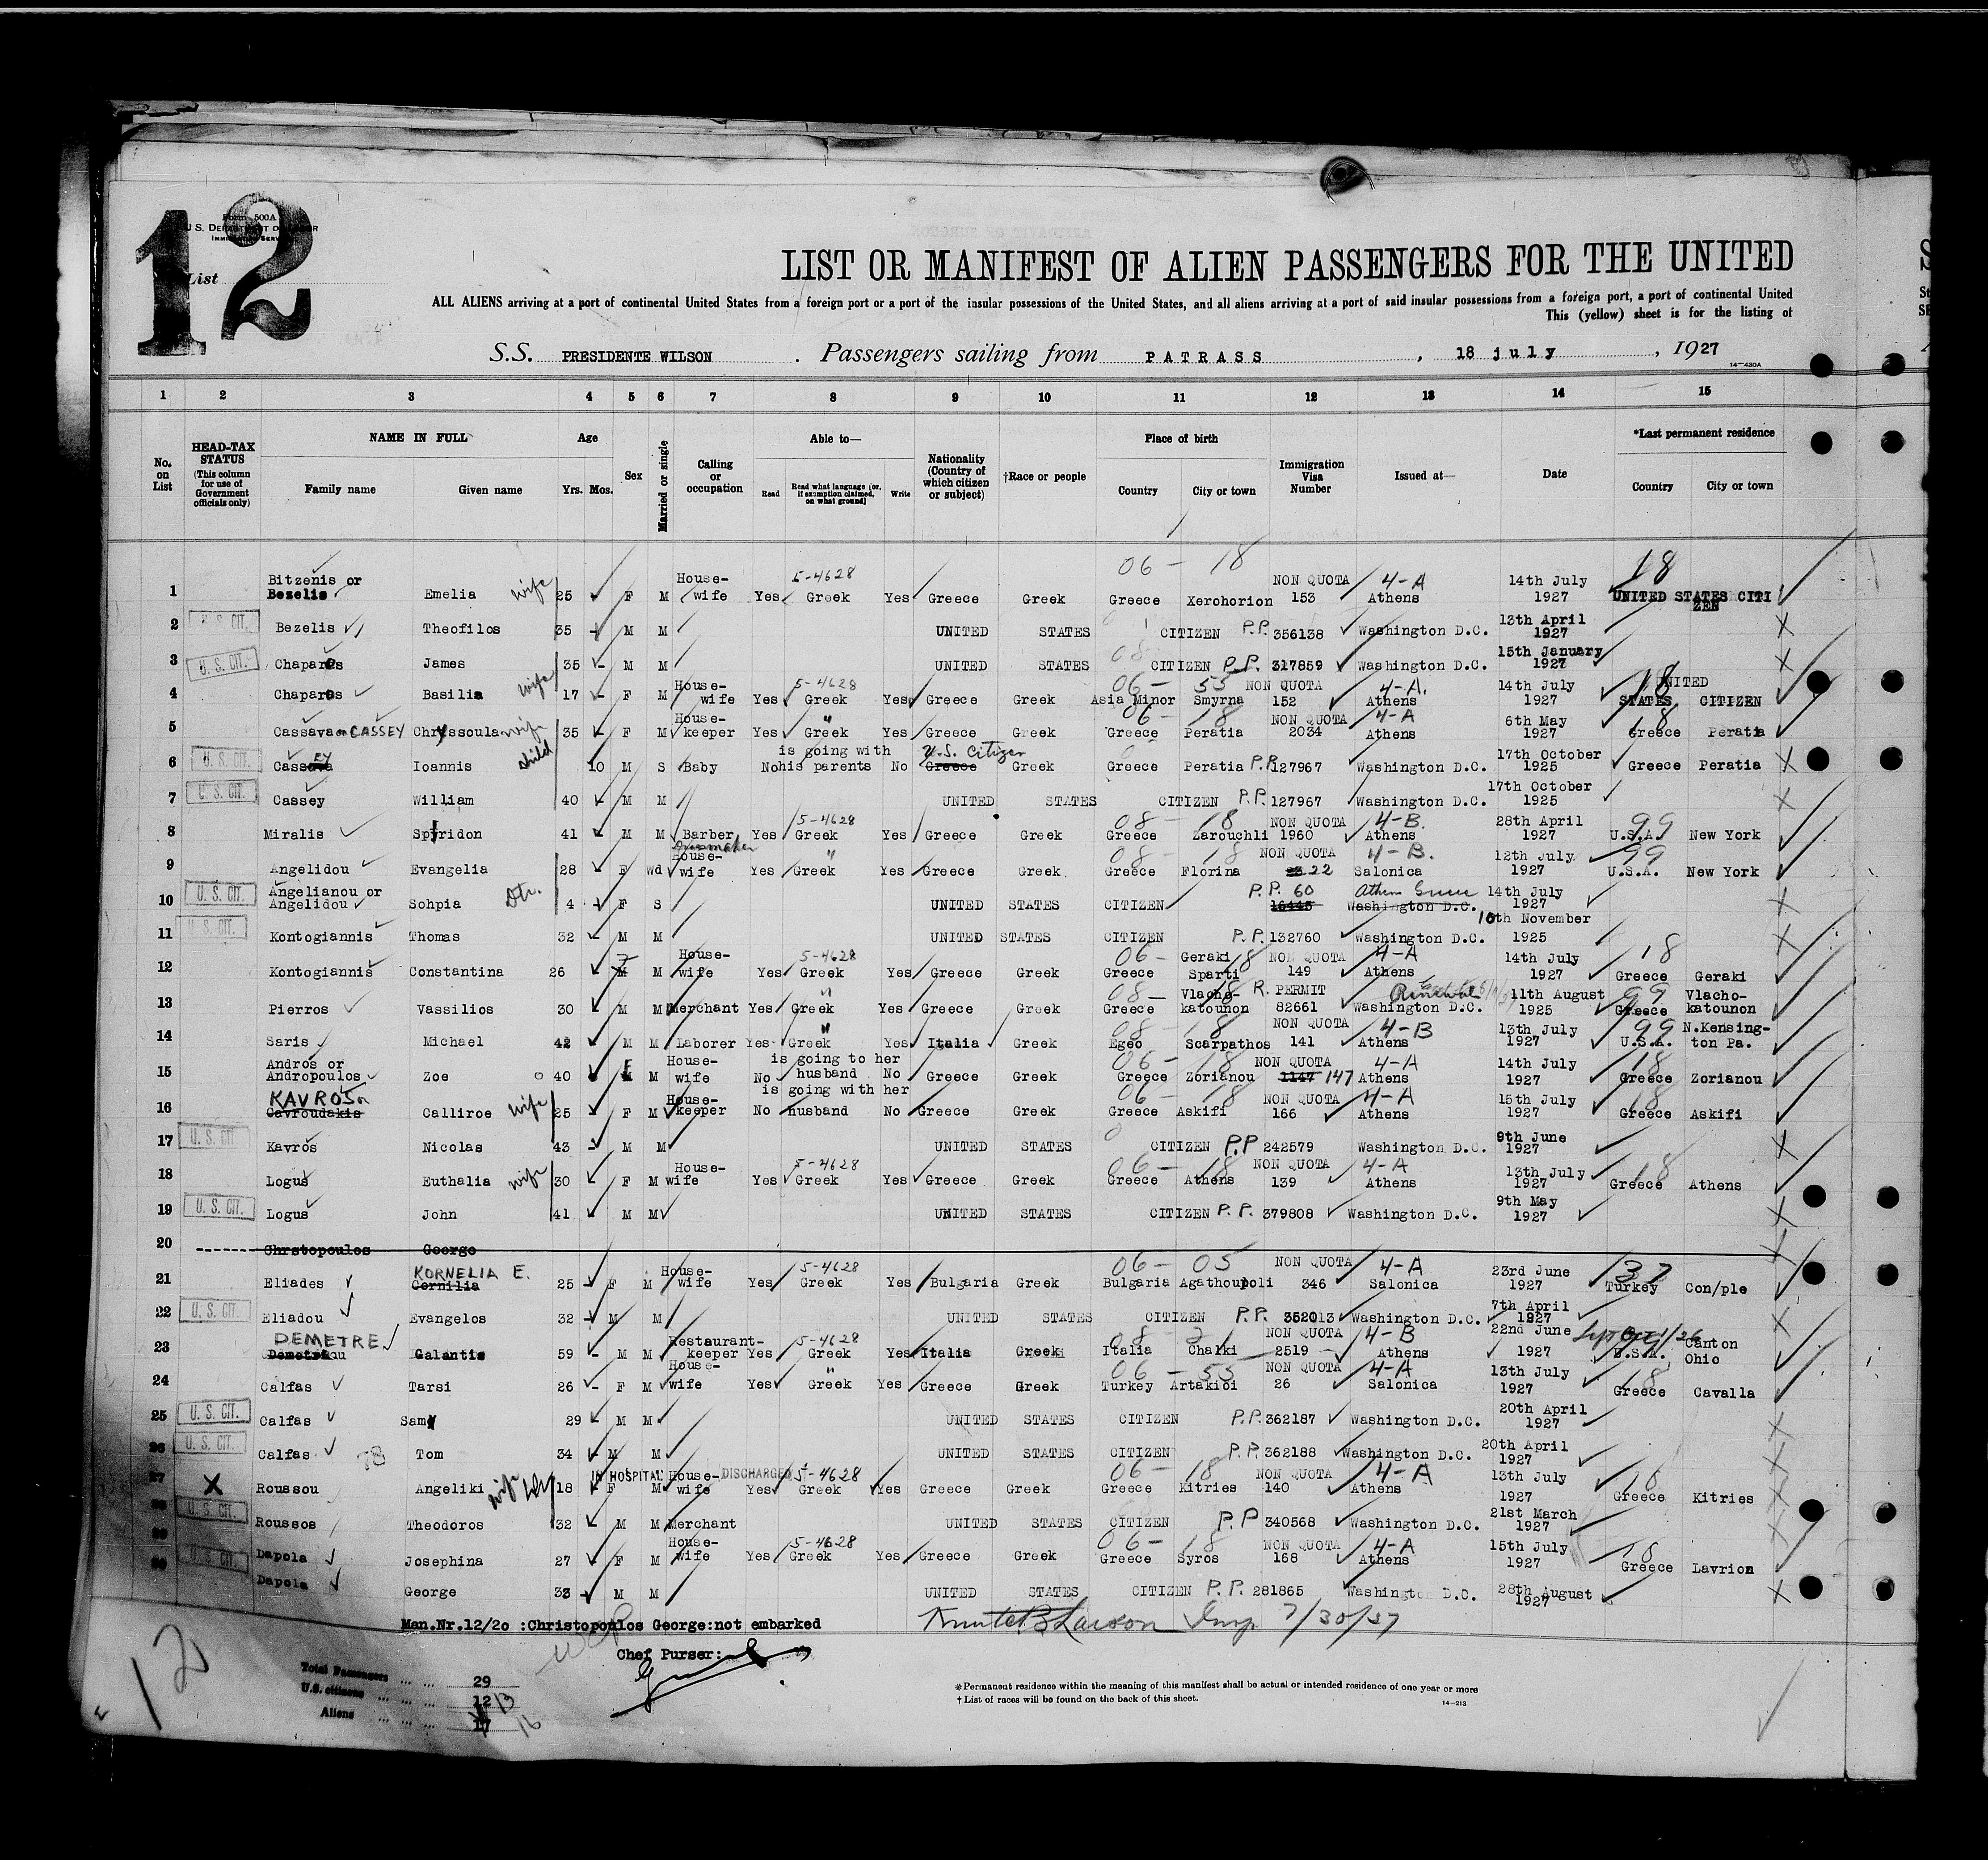 12
Form 500A
U.S. DEPARTMENT OF LABOR
IMMIGRATION SERVICE
List
LIST OR MANIFEST OF ALIEN PASSENGERS FOR THE UNITED
ALL ALIENS arriving at a port of continental United States from a foreign port or a port of the insular possessions of the United States, and all aliens arriving at a port of said insular possessions from a foreign port, a port of continental United
This (yellow) sheet is for the listing of
S.S. PRESIDENTE WILSON . Passengers sailing from PATRASS , 18 july , 1927
14—430A
1 2 3 4 5 6 7 8 9 10 11 12 13 14 15
No. on List
HEAD-TAX STATUS (This column for use of Government officials only)
NAME IN FULL Family name Given name
Age Yrs. Mos.
Sex
Married or single
Calling or occupation
Able to— Read Read what language (or, if exemption claimed, on what ground) Write
Nationality (Country of which citizen or subject)
†Race or people
Place of birth Country City or town
Immigration Visa Number
Issued at—
Date
*Last permanent residence Country City or town
1 Bitzenis or Bezelis Emelia wife 25 F M House-wife Yes 5-4628 Greek Yes Greece Greek 06 - 18 Greece Xerohorion NON QUOTA 153 4-A Athens 14th July 1927 18 UNITED STATES CITIZEN
2 U.S. CIT. Bezelis Theofilos 35 M M UNITED STATES CITIZEN P.P. 356138 Washington D.C. 13th April 1927 X
3 U.S. CIT. Chaparos James 35 M M UNITED STATES CITIZEN P.P. 317859 Washington D.C. 15th January 1927 X
4 Chaparos Basilia wife 17 F M House-wife Yes 5-4628 Greek Yes Greece Greek 06 - 55 Asia Minor Smyrna NON QUOTA 152 4-A. Athens 14th July 1927 18 UNITED STATES CITIZEN
5 Cassava or CASSEY Chryssoula wife 35 F M House-keeper Yes " Greek Yes Greece Greek 06 - 18 Greece Peratia NON QUOTA 2034 4-A Athens 6th May 1927 18 Greece Peratia
6 U.S. CIT. Cassava EY Ioannis child 10 M S Baby No is going with his parents No Greece U.S. Citizen Greek Greece Peratia P.P. 127967 Washington D.C. 17th October 1925 Greece Peratia X
7 U.S. CIT. Cassey William 40 M M UNITED STATES CITIZEN P.P. 127967 Washington D.C. 17th October 1925 X
8 Miralis Spyridon 41 M M Barber Yes 5-4628 Greek Yes Greece Greek 08 - 18 Greece Zarouchli NON QUOTA 1960 4-B. Athens 28th April 1927 99 U.S.A. New York
9 Angelidou Evangelia 28 F Wd Dressmaker House-wife Yes " Greek Yes Greece Greek 08 - 18 Greece Florina NON QUOTA 22 4-B. Salonica 12th July 1927 99 U.S.A. New York
10 U.S. CIT. Angelianou or Angelidou Sohpia Dtr. 4 F S UNITED STATES CITIZEN P.P. 60 16445 Athens Greece Washington D.C. 14th July 1927 X
11 U.S. CIT. Kontogiannis Thomas 32 M M UNITED STATES CITIZEN P.P. 132760 Washington D.C. 10th November 1925 X
12 Kontogiannis Constantina 26 M M House-wife Yes 5-4628 Greek Yes Greece Greek 06 - 18 Greece Geraki Sparti NON QUOTA 149 4-A Athens 14th July 1927 18 Greece Geraki
13 Pierros Vassilios 30 M M Merchant Yes " Greek Yes Greece Greek 08 - 18 Greece Vlacho-katounon R. PERMIT 82661 Renewal Washington D.C. 11th August 1925 99 Greece Vlacho-katounon
14 Saris Michael 42 M M Laborer Yes " Greek Yes Italia Greek 08 - 18 Egeo Scarpathos NON QUOTA 141 4-B Athens 13th July 1927 99 U.S.A. N.Kensing-ton Pa.
15 Andros or Andropoulos Zoe 40 F M House-wife No is going to her husband No Greece Greek 06 - 18 Greece Zorianou NON QUOTA 1147 147 4-A Athens 14th July 1927 18 Greece Zorianou
16 KAVROS Cavroudakis Calliroe wife 25 F M House-keeper No is going with her husband No Greece Greek 06 - 18 Greece Askifi NON QUOTA 166 4-A Athens 15th July 1927 18 Greece Askifi
17 U.S. CIT. Kavros Nicolas 43 M M UNITED STATES CITIZEN P.P 242579 Washington D.C. 8th June 1927 X
18 Logus Euthalia wife 30 F M House-wife Yes 5-4628 Greek Yes Greece Greek 06 - 18 Greece Athens NON QUOTA 139 4-A Athens 13th July 1927 18 Greece Athens
19 U.S. CIT. Logus John 41 M M UNITED STATES CITIZEN P.P. 379808 Washington D.C. 9th May 1927 X
20 ------- Chrstopoulos George X
21 Eliades KORNELIA E. Cornilia 25 F M House-wife Yes 5-4628 Greek Yes Bulgaria Greek 06 - 05 Bulgaria Agathoupoli NON QUOTA 346 4-A Salonica 23rd June 1927 37 Turkey Con/ple
22 U.S. CIT. Eliadou Evangelos 32 M M UNITED STATES CITIZEN P.P. 352013 Washington D.C. 7th April 1927 X
23 DEMETRE Galantis 59 M M Restaurant-keeper Yes 5-4628 Greek Yes Italia Greek Italia Chalki NON QUOTA 2519 4-B Athens 22nd June 1927 U.S.A. Canton Ohio
24 Calfas Tarsi 26 F M House-wife Yes " Greek Yes Greece Greek 06 - 55 Turkey Artakioi NON QUOTA 26 4-A Salonica 13th July 1927 18 Greece Cavalla
25 U.S. CIT. Calfas Sam 29 M M UNITED STATES CITIZEN P.P. 362187 Washington D.C. 20th April 1927 X
26 U.S. CIT. Calfas Tom 34 M M UNITED STATES CITIZEN P.P. 362188 Washington D.C. 20th April 1927 X
27 X Roussou Angeliki wife 18 IN HOSPITAL F M House-wife DISCHARGED Yes 5-4628 Greek Yes Greece Greek 06 - 18 Greece Kitries NON QUOTA 140 4-A Athens 13th July 1927 18 Greece Kitries X
28 U.S. CIT. Roussos Theodoros 32 M M Merchant UNITED STATES CITIZEN P.P 340568 Washington D.C. 21st March 1927 X
29 Dapola Josephina 27 F M House-wife Yes 5-4628 Greek Yes Greece Greek 06 - 18 Greece Syros NON QUOTA 168 4-A Athens 15th July 1927 18 Greece Lavrion
30 U.S. CIT. Dapola George 33 M M UNITED STATES CITIZEN P.P. 281865 Washington D.C. 28th August 1927 X
Man.Nr.12/20 :Christopoulos George:not embarked
Knute B Larson Insp. 7/30/27
Chef Purser:
12
Total Passengers ... ... 29
U.S. citizens ... ... ... 12 13
Aliens ... ... ... 17 16
*Permanent residence within the meaning of this manifest shall be actual or intended residence of one year or more
† List of races will be found on the back of this sheet.
14—213